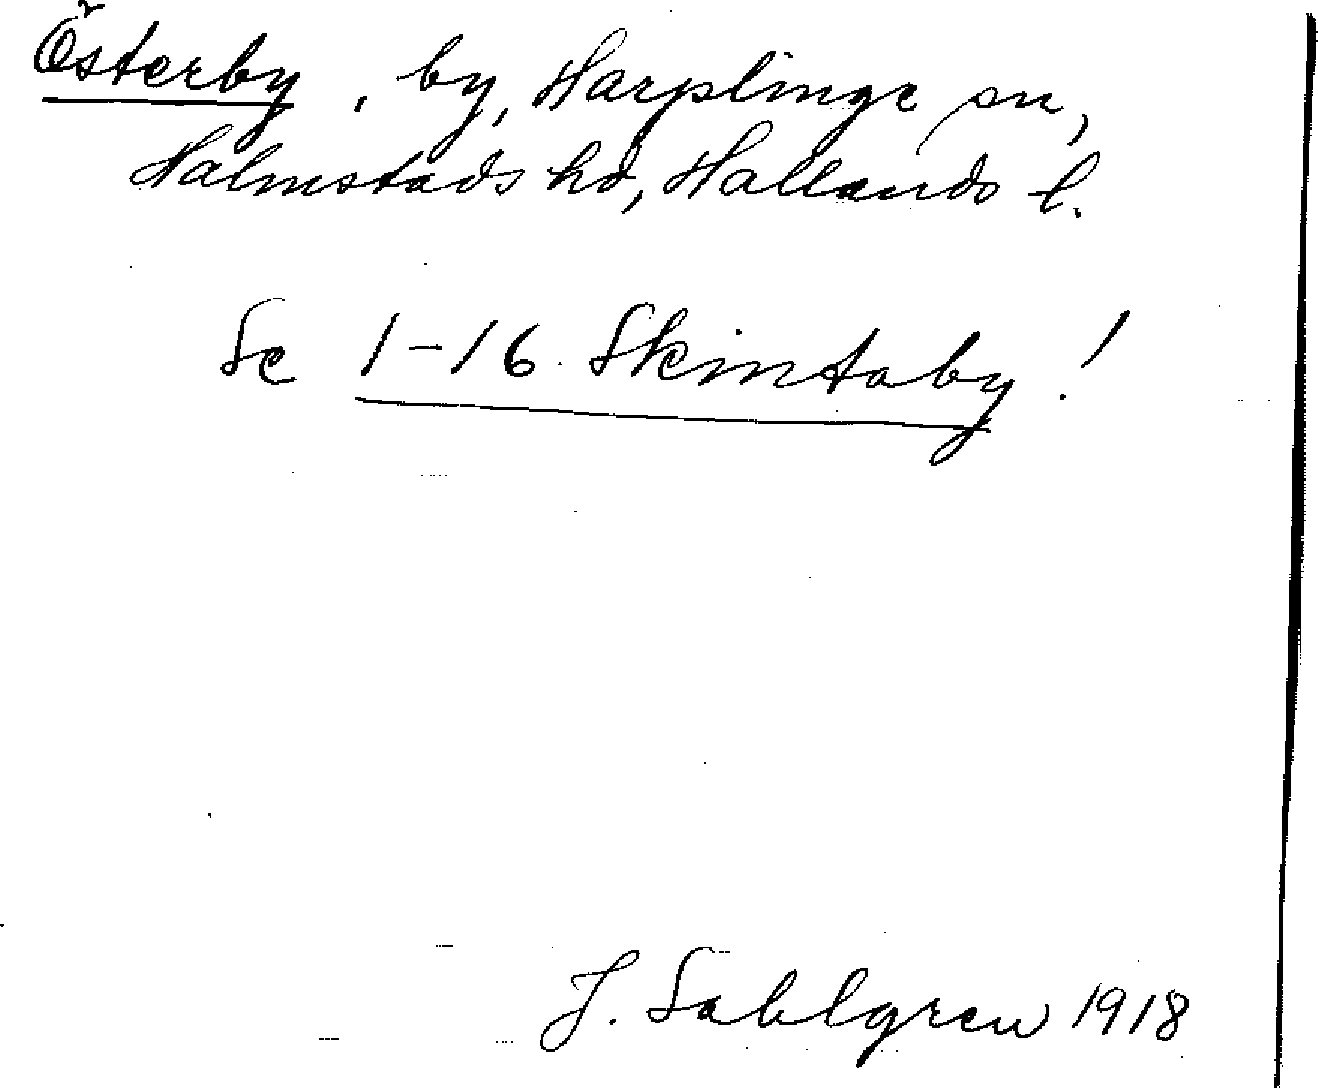 Österby, by, Harplinge sn,
Halmstads hd, Hallands l.
Se 1-16 Skintaby!
J. Sahlgren 1918